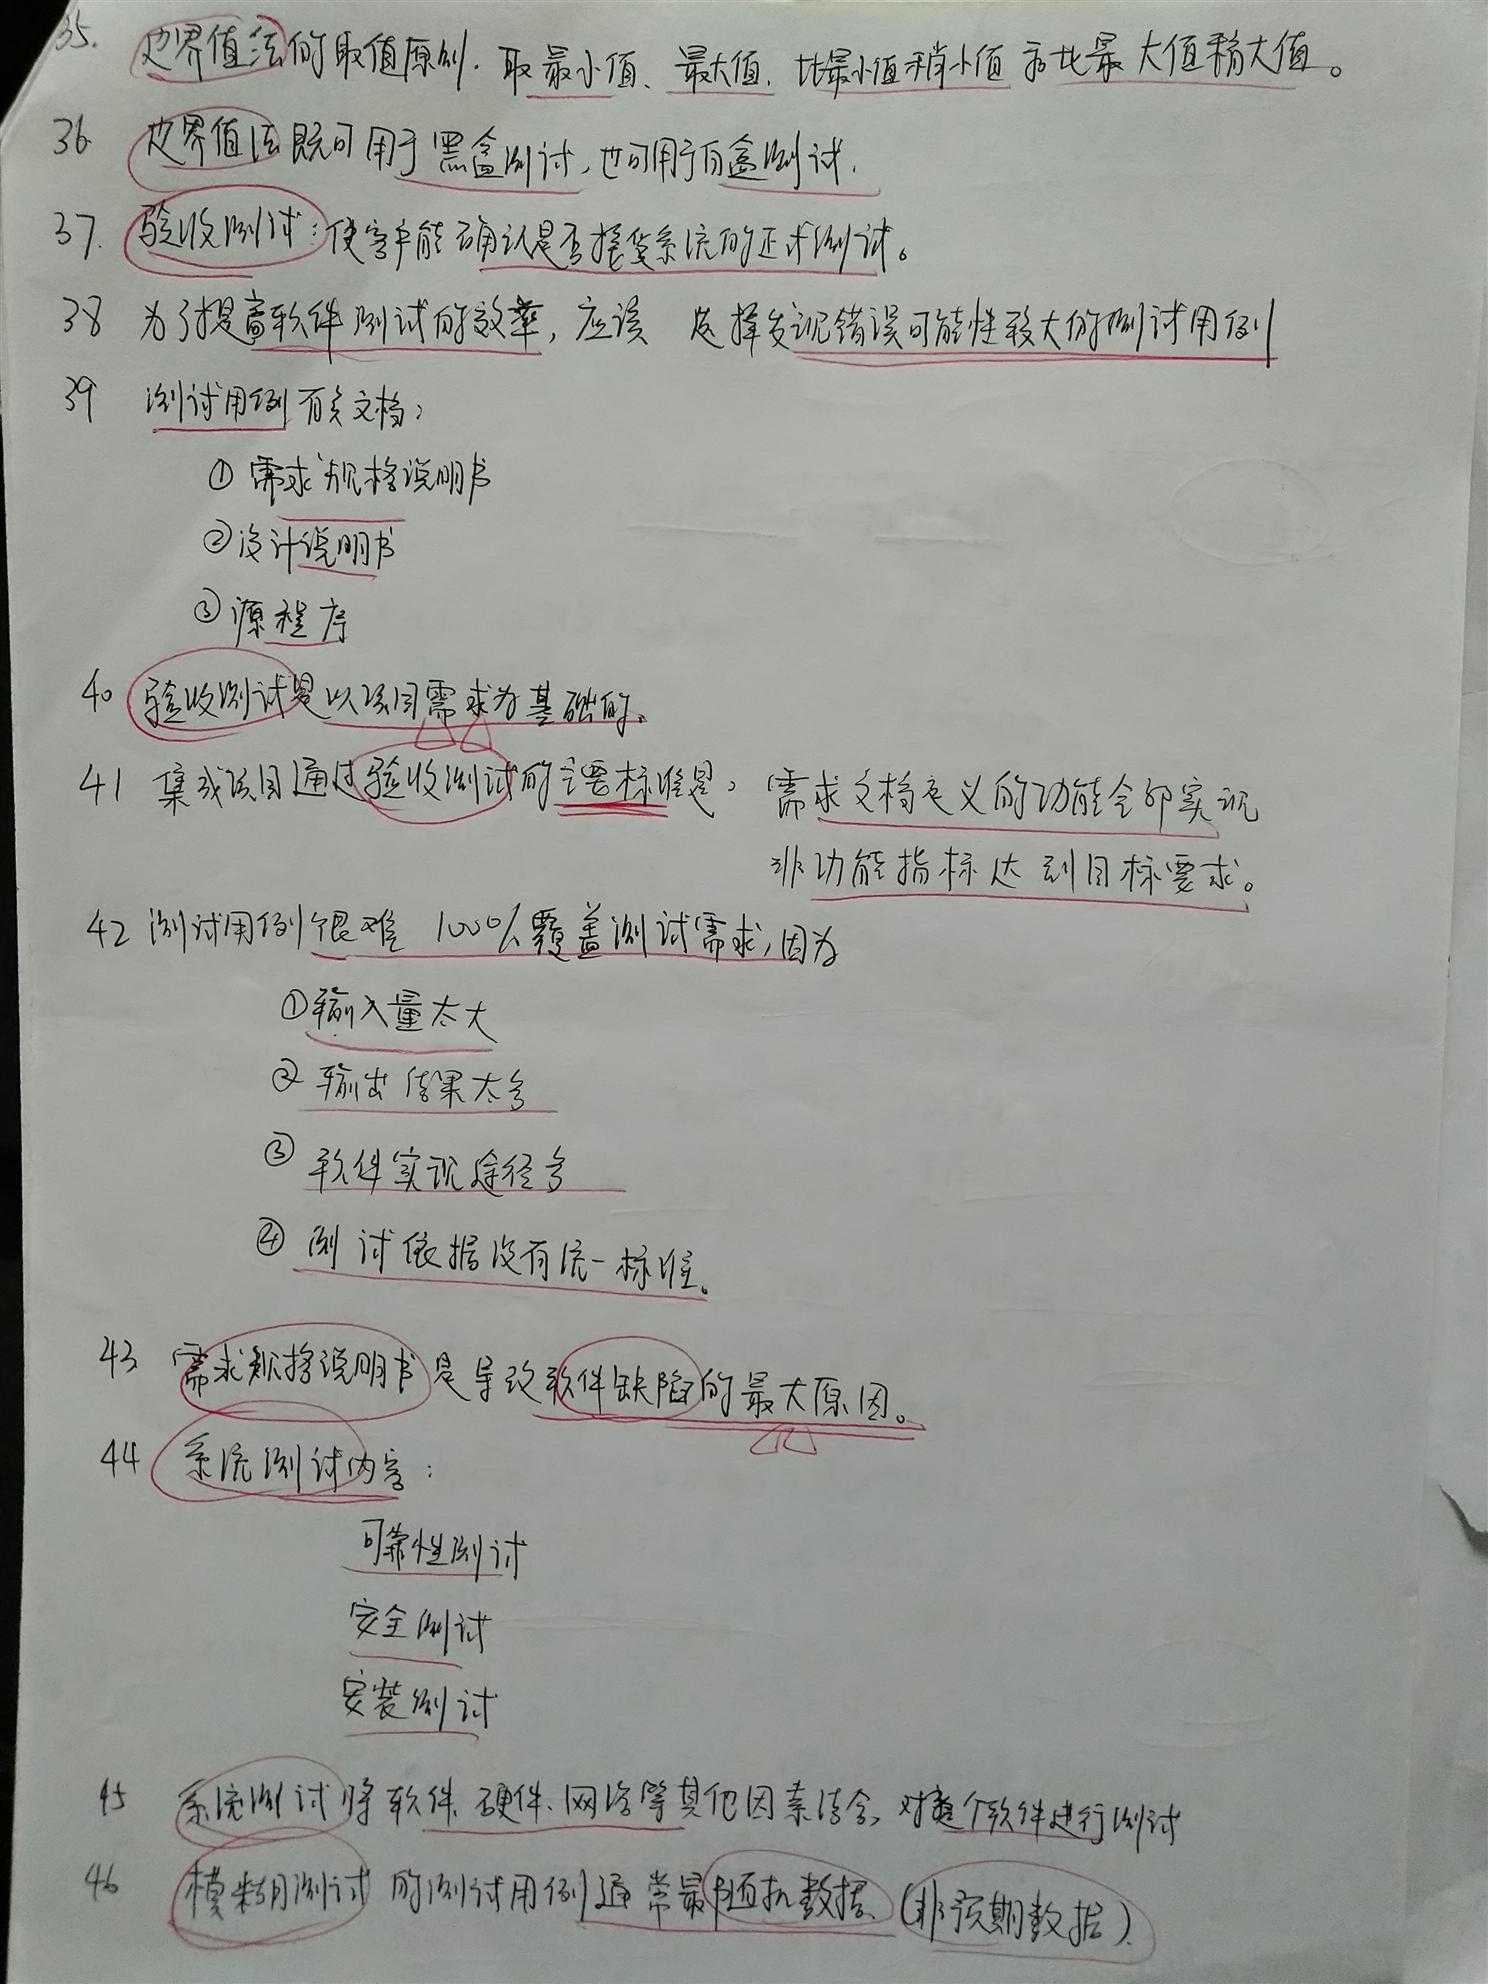 35. 边界值法的取值原则. 取最小值、最大值, 比最小值稍小值和比最大值稍大值。
36 边界值法既可用于黑盒测试, 也可用于白盒测试.
37. 验收测试: 使客户能确认是否接受系统的正式测试。
38 为了提高软件测试的效率, 应该 选择发现错误可能性较大的测试用例
39 测试用例有关文档:
① 需求规格说明书
② 设计说明书
③ 源程序
40 验收测试是以项目需求为基础的。
41 集成项目通过验收测试的主要标准是, 需求文档定义的功能全部实现
非功能指标达到目标要求。
42 测试用例很难 100% 覆盖测试需求, 因为
① 输入量太大
② 输出结果太多
③ 软件实现途径多
④ 测试依据没有统一标准。
43 需求规格说明书是导致软件缺陷的最大原因。
44 系统测试内容:
可靠性测试
安全测试
安装测试
45 系统测试将软件、硬件、网络等其他因素结合, 对整个软件进行测试
46 模糊测试的测试用例通常是随机数据 (非预期数据).